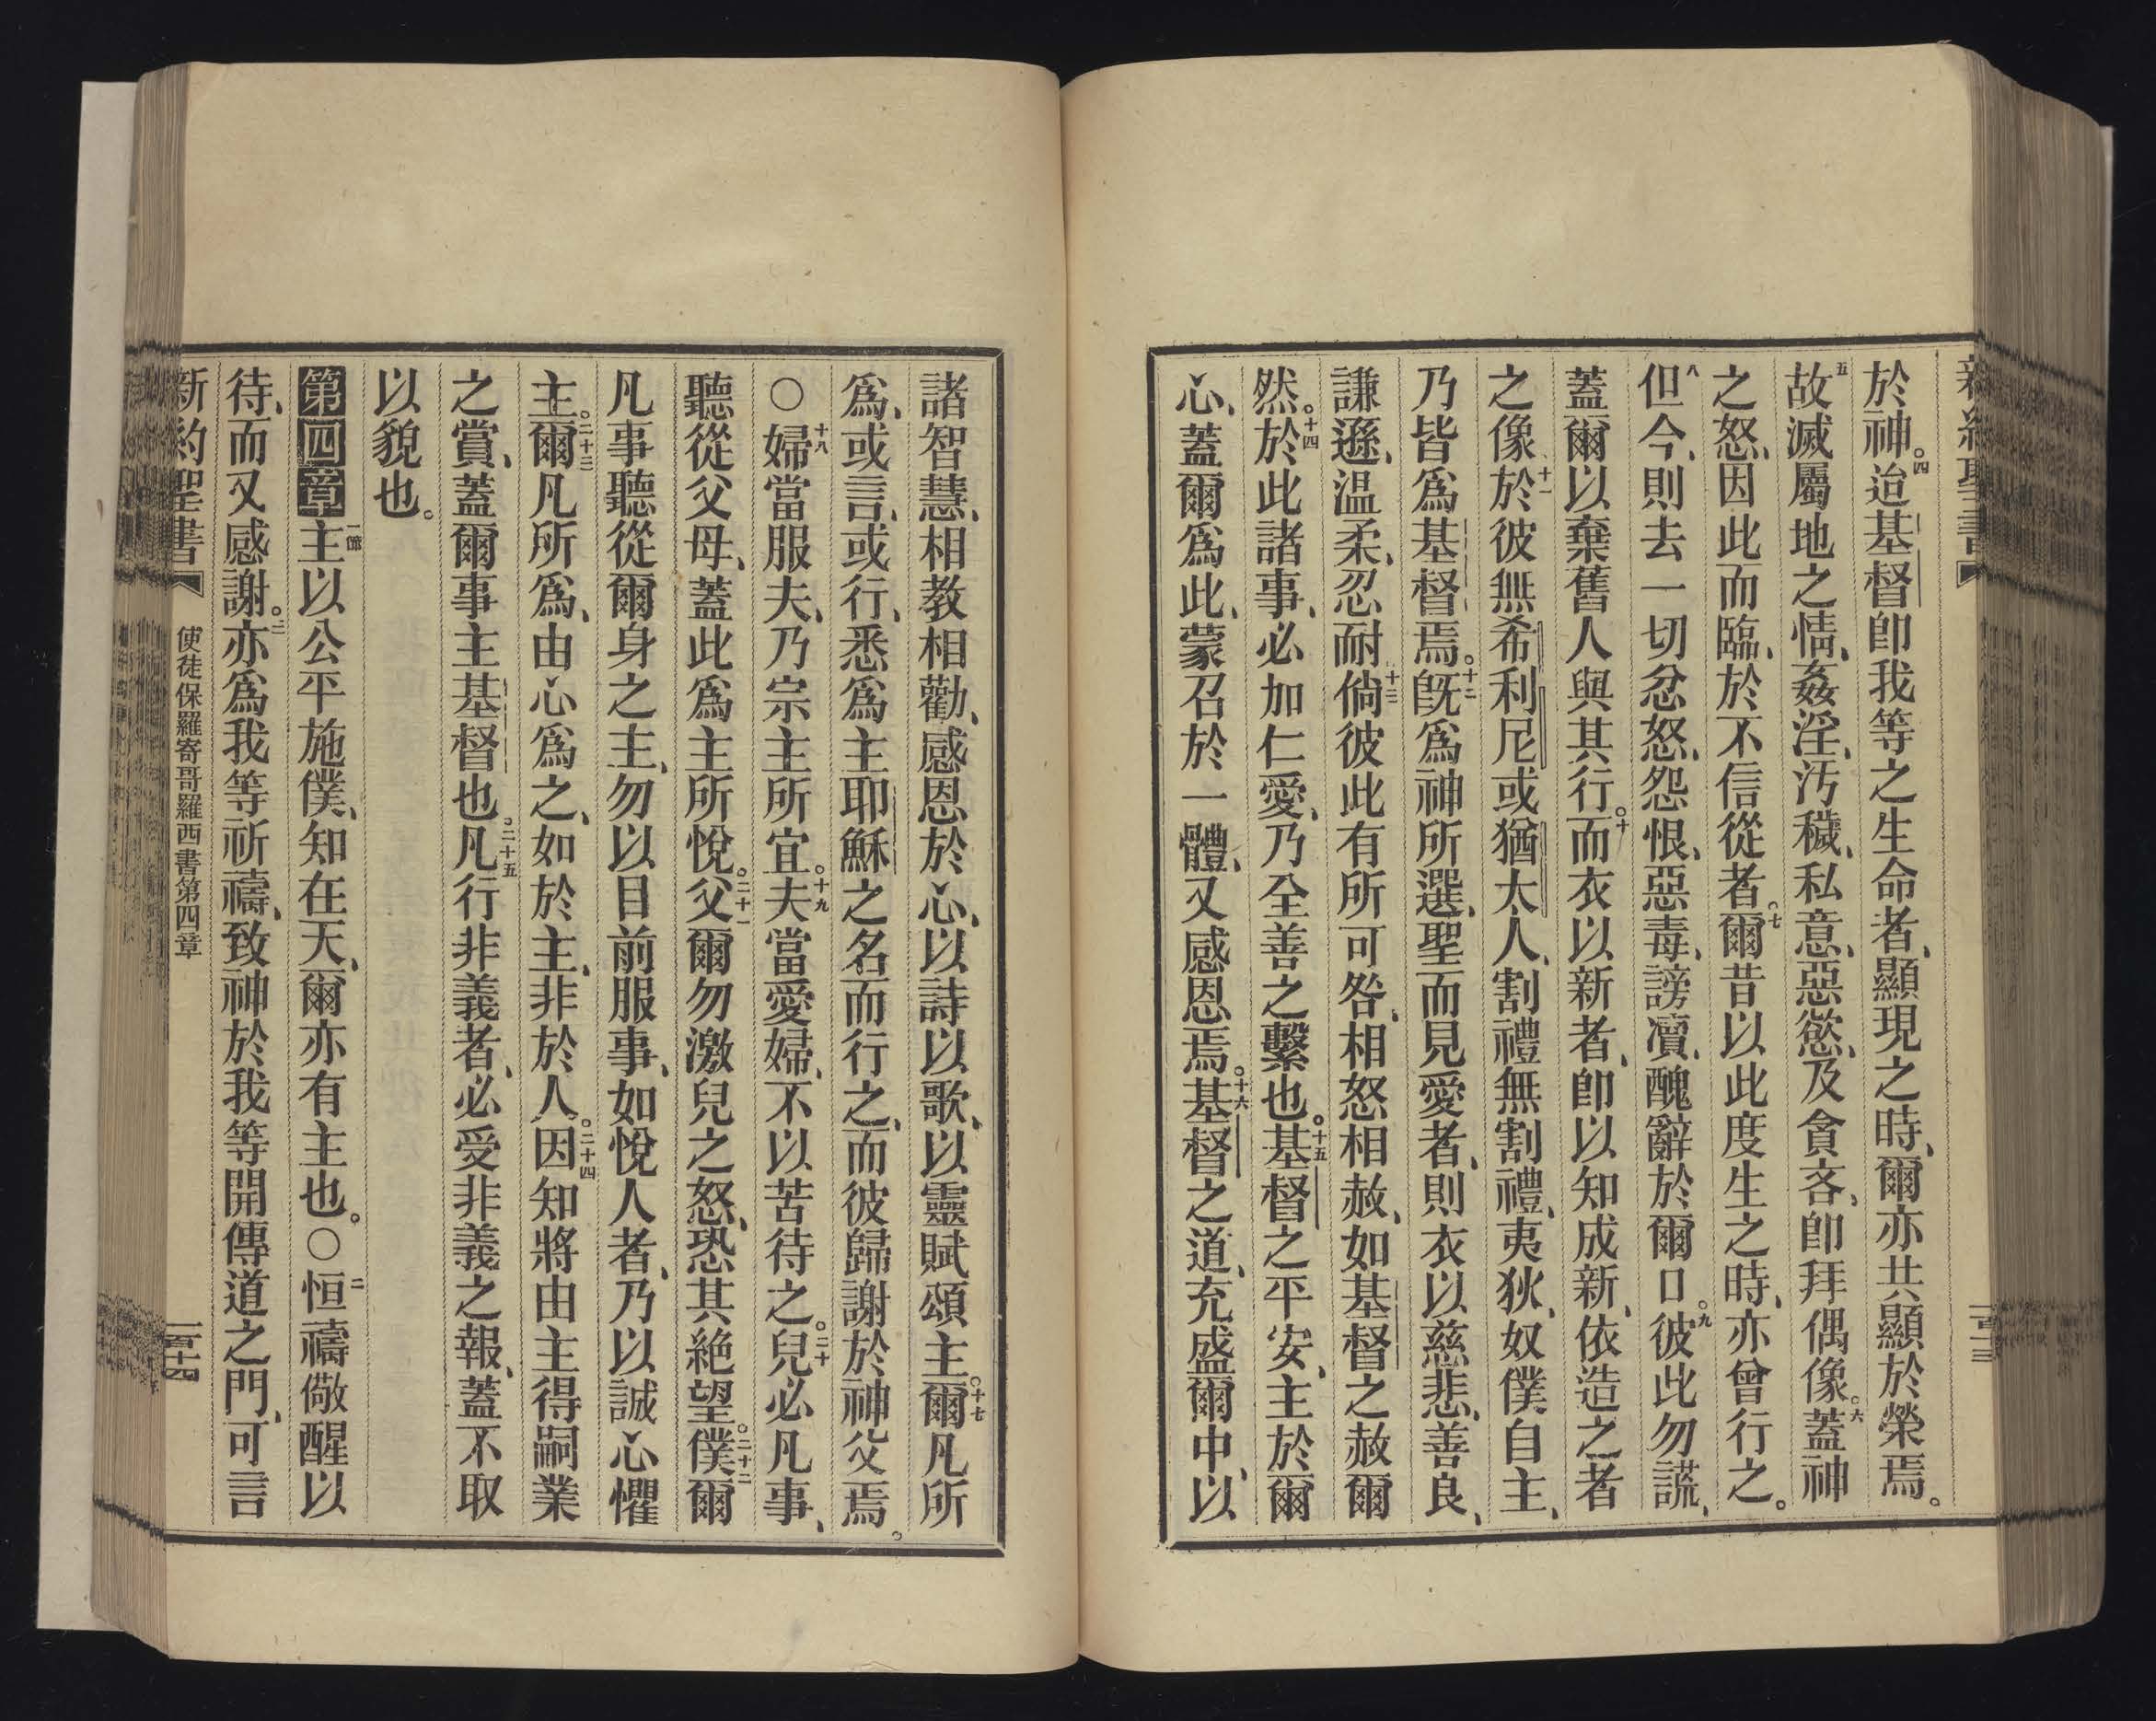 新約聖書
於神。四迨基督卽我等之生命者、顯現之時、爾亦共顯於榮焉。
五故滅屬地之情、姦淫、汚穢、私意、惡慾、及貪吝、卽拜偶像。六蓋神
之怒、因此而臨、於不信從者。七爾昔以此度生之時、亦曾行之。
八但今、則去一切忿怒、怨恨、惡毒、謗瀆、醜辭於爾口。九彼此勿謊、
蓋爾以棄舊人與其行。十而衣以新者、卽以知成新、依造之者
之像、十一於彼無希利尼或猶太人、割禮無割禮、夷狄、奴僕自主、
乃皆爲基督焉。十二旣爲神所選、聖而見愛者、則衣以慈悲、善良、
謙遜、温柔、忍耐、十三倘彼此有所可咎、相恕相赦、如基督之赦爾
然。十四於此諸事、必加仁愛、乃全善之繫也。十五基督之平安、主於爾
心、蓋爾爲此、蒙召於一體、又感恩焉。十六基督之道、充盛爾中、以
諸智慧、相教相勸、感恩於心、以詩以歌、以靈賦頌主。十七爾凡所
爲、或言、或行、悉爲主耶穌之名而行之、而彼歸謝於神父焉。
○十八婦當服夫、乃宗主所宜。十九夫當愛婦、不以苦待之。二十兒必凡事、
聽從父母、蓋此爲主所悅。二十一父爾勿激兒之怒、恐其絶望。二十二僕爾
凡事聽從爾身之主、勿以目前服事、如悅人者、乃以誠心懼
主。二十三爾凡所爲、由心爲之、如於主、非於人。二十四因知將由主得嗣業
之賞、蓋爾事主基督也。二十五凡行非義者、必受非義之報、蓋不取
以貌也。
第四章一節主以公平施僕、知在天、爾亦有主也。○二恒禱儆醒以
待、而又感謝。三亦爲我等祈禱、致神於我等開傳道之門、可言
新約聖書 使徒保羅寄哥羅西書第四章 一百十四